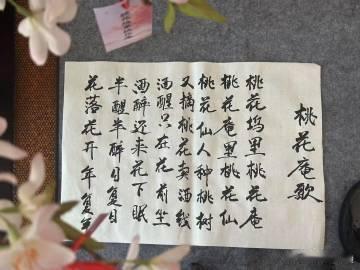 桃花庵歌
桃花坞里桃花庵
桃花庵里桃花仙
桃花仙人种桃树
又摘桃花卖酒钱
酒醒只在花前坐
酒醉还来花下眠
半醒半醉日复日
花落花开年复年